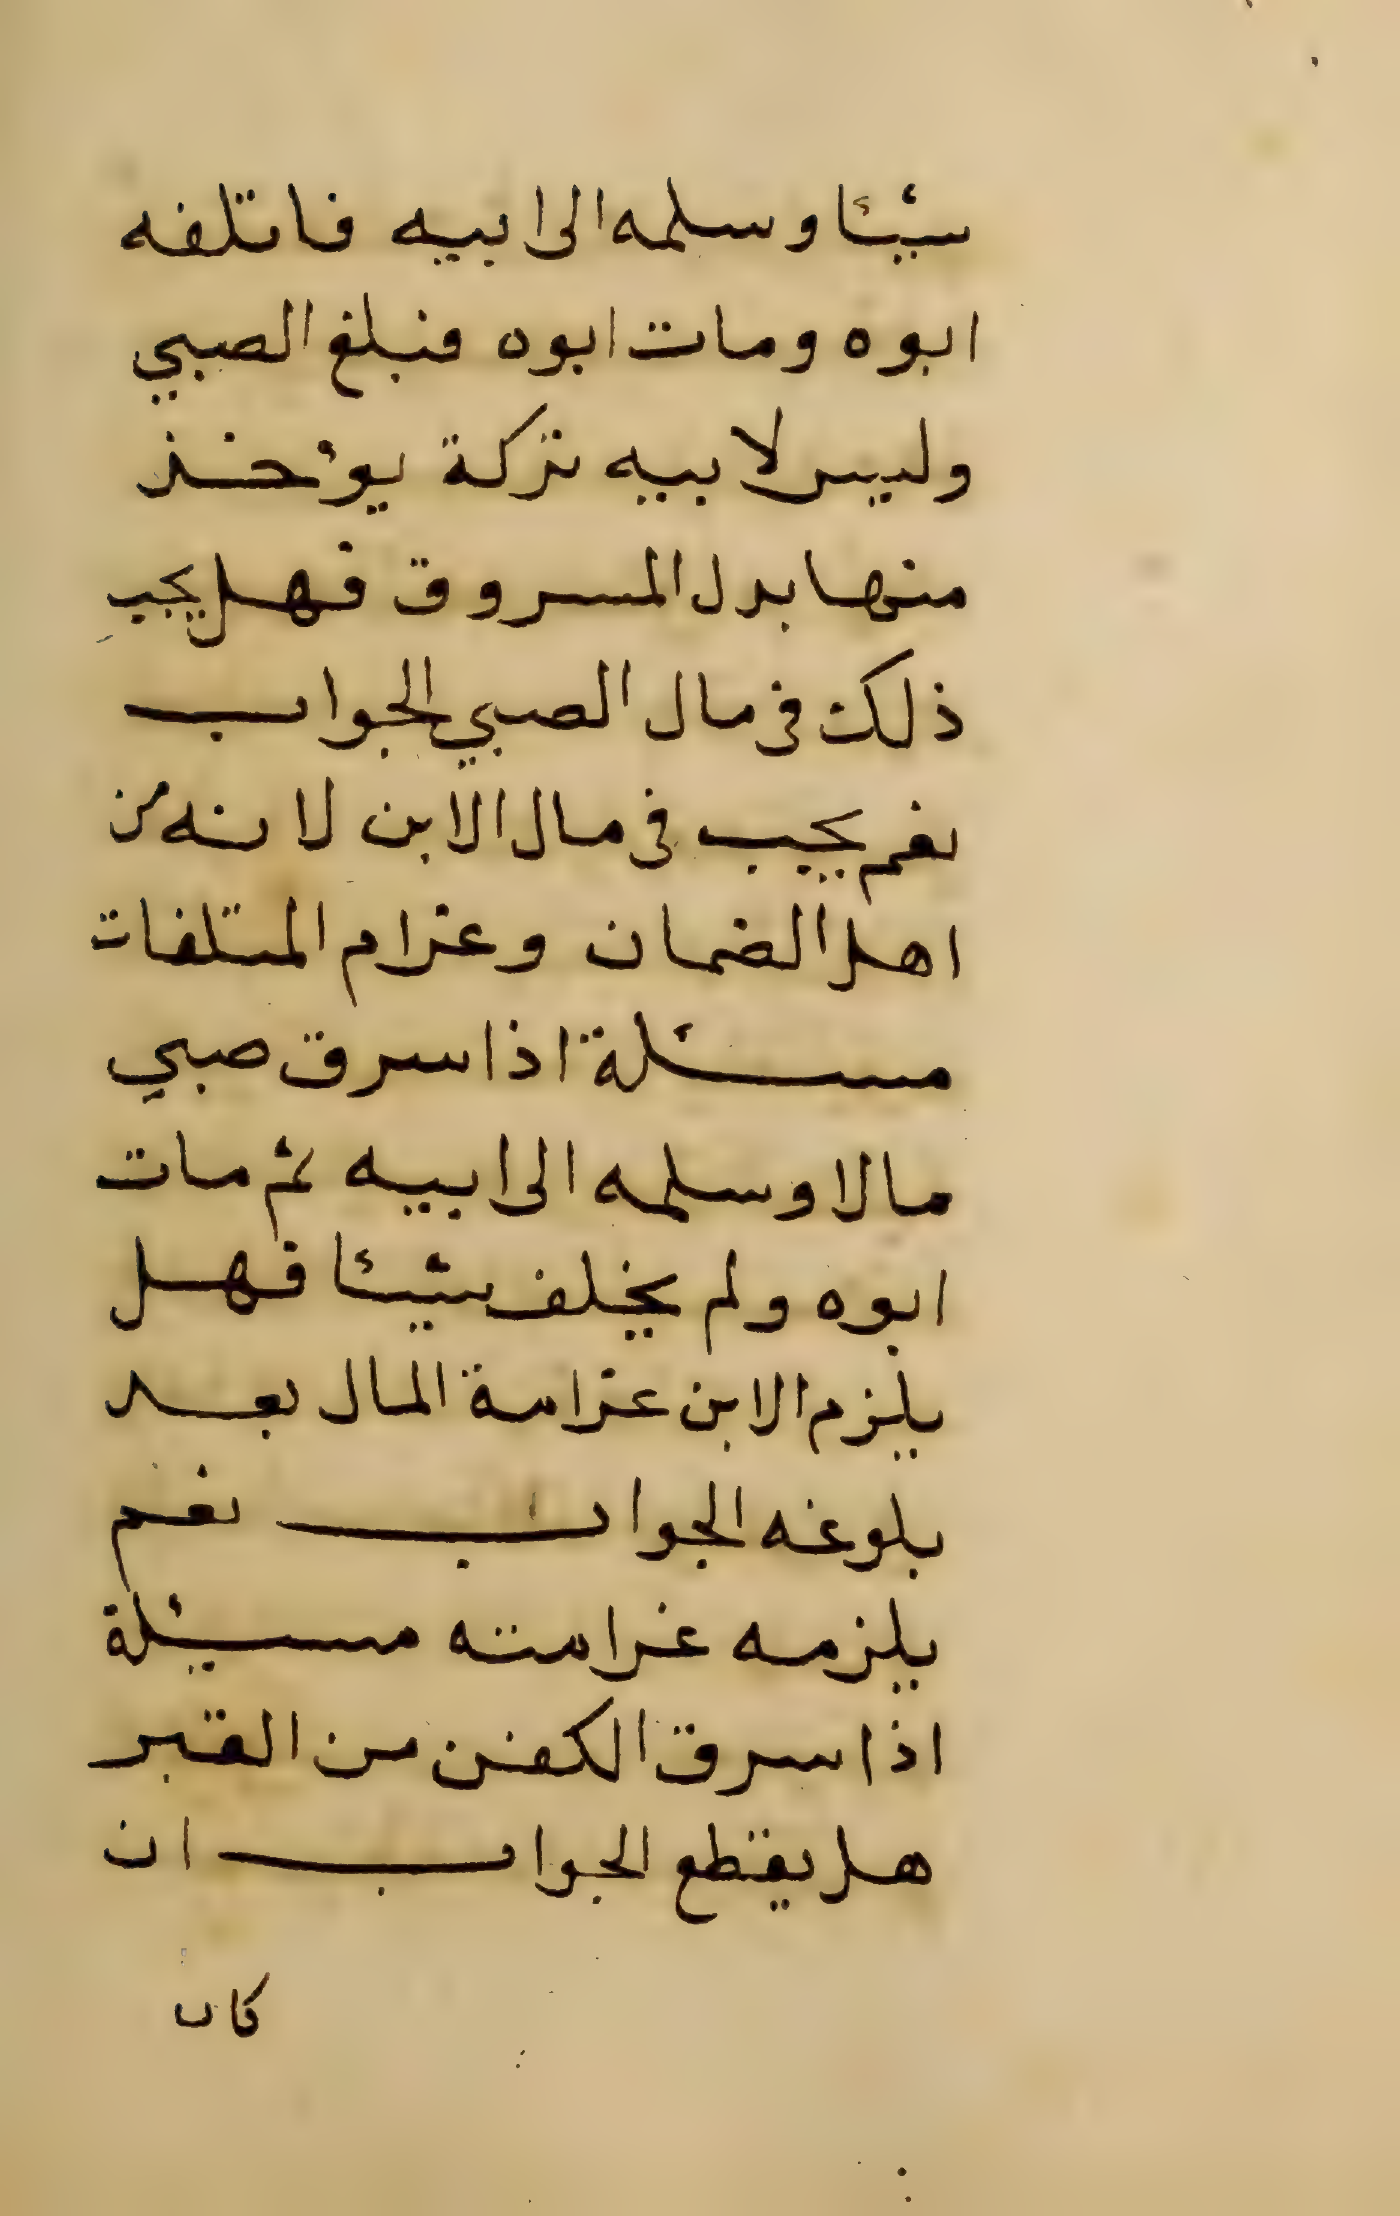 شيئا وسلمه الى ابيه فاتلفه
ابوه ومات ابوه فبلغ الصبي
وليس لابيه تركة يوخذ
منها بدل المسروق فهل يجب
ذلك فى مال الصبي الجواب
نعم يجب فى مال الابن لانه من
اهل الضمان وغرام المتلفات
مسئلة اذا سرق صبي
مالا وسلمه الى ابيه ثم مات
ابوه ولم يخلف شيئا فهل
يلزم الابن غرامة المال بعد
بلوغه الجواب نعم
يلزمه غرامته مسئلة
اذا سرق الكفن من القبر
هل يقطع الجواب ان
كان